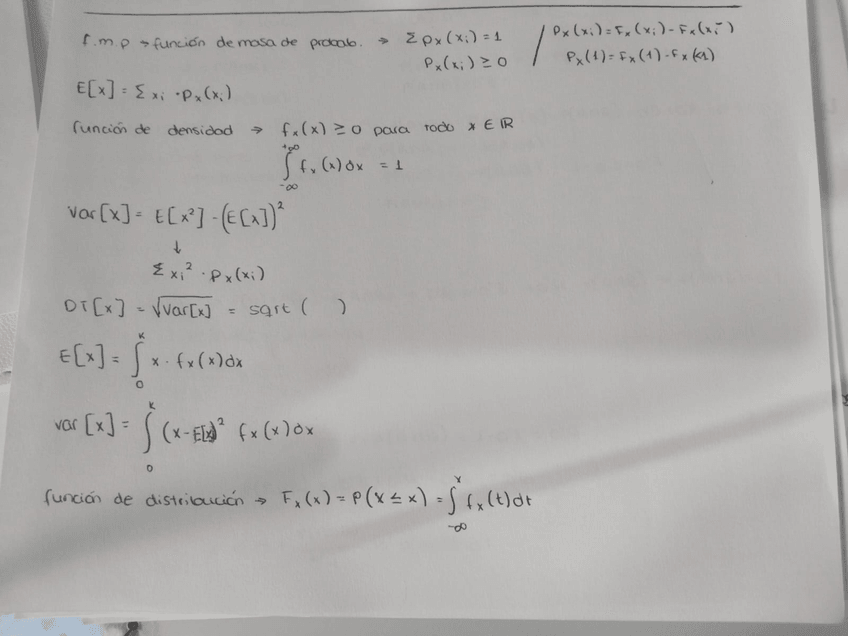 f.m.p → función de masa de probab. → Σ px(xi) = 1 / Px(xi) = Fx(xi) - Fx(xi⁻)
Px(xi) ≥ 0 Px(1) = Fx(1) - Fx(<1)
E[x] = Σ xi · Px(xi)
función de densidad → fx(x) ≥ 0 para todo x ∈ ℝ
∫_{-∞}^{+∞} fx(x)dx = 1
Var[x] = E[x²] - (E[x])²
↓
Σ xi² · Px(xi)
DT[x] = √Var[x] = sqrt ( )
E[x] = ∫_0^k x · fx(x)dx
var [x] = ∫_0^k (x-E[x])² fx(x)dx
función de distribución → Fx(x) = P(X ≤ x) = ∫_{-∞}^x fx(t)dt